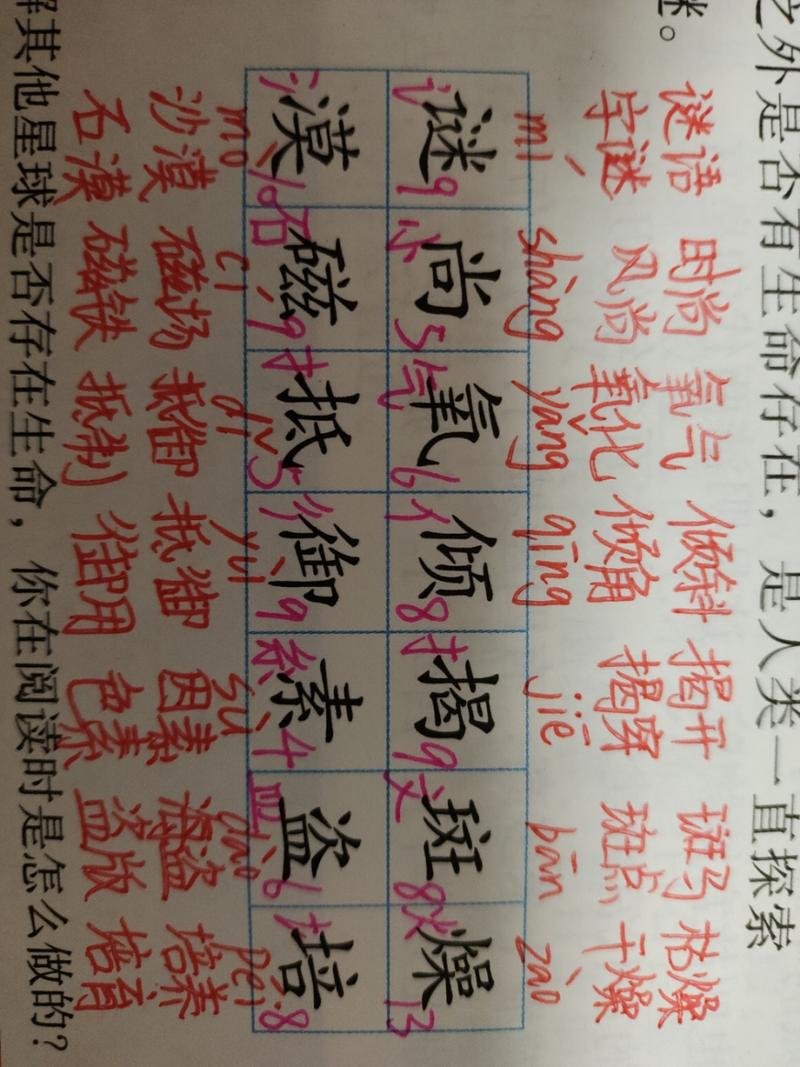 之外是否有生命存在，是人类一直探索
谜。
谜语 时尚 氧气 倾斜 揭开 斑马 枯燥
字谜 风尚 氧化 倾角 揭穿 斑点 干燥
mí shàng yǎng qīng jiē bān zào
谜 尚 氧 倾 揭 斑 燥
讠9 小5 气6 亻8 扌9 文8 火13
漠 磁 抵 御 素 盗 培
氵10 石9 扌5 彳9 糸4 皿6 土8
mò cí dǐ yù sù dào péi
沙漠 磁场 抵御 抵御 因素 海盗 培养
石漠 磁铁 抵制 御用 色素 盗版 培育
解其他星球是否存在生命，你在阅读时是怎么做的？